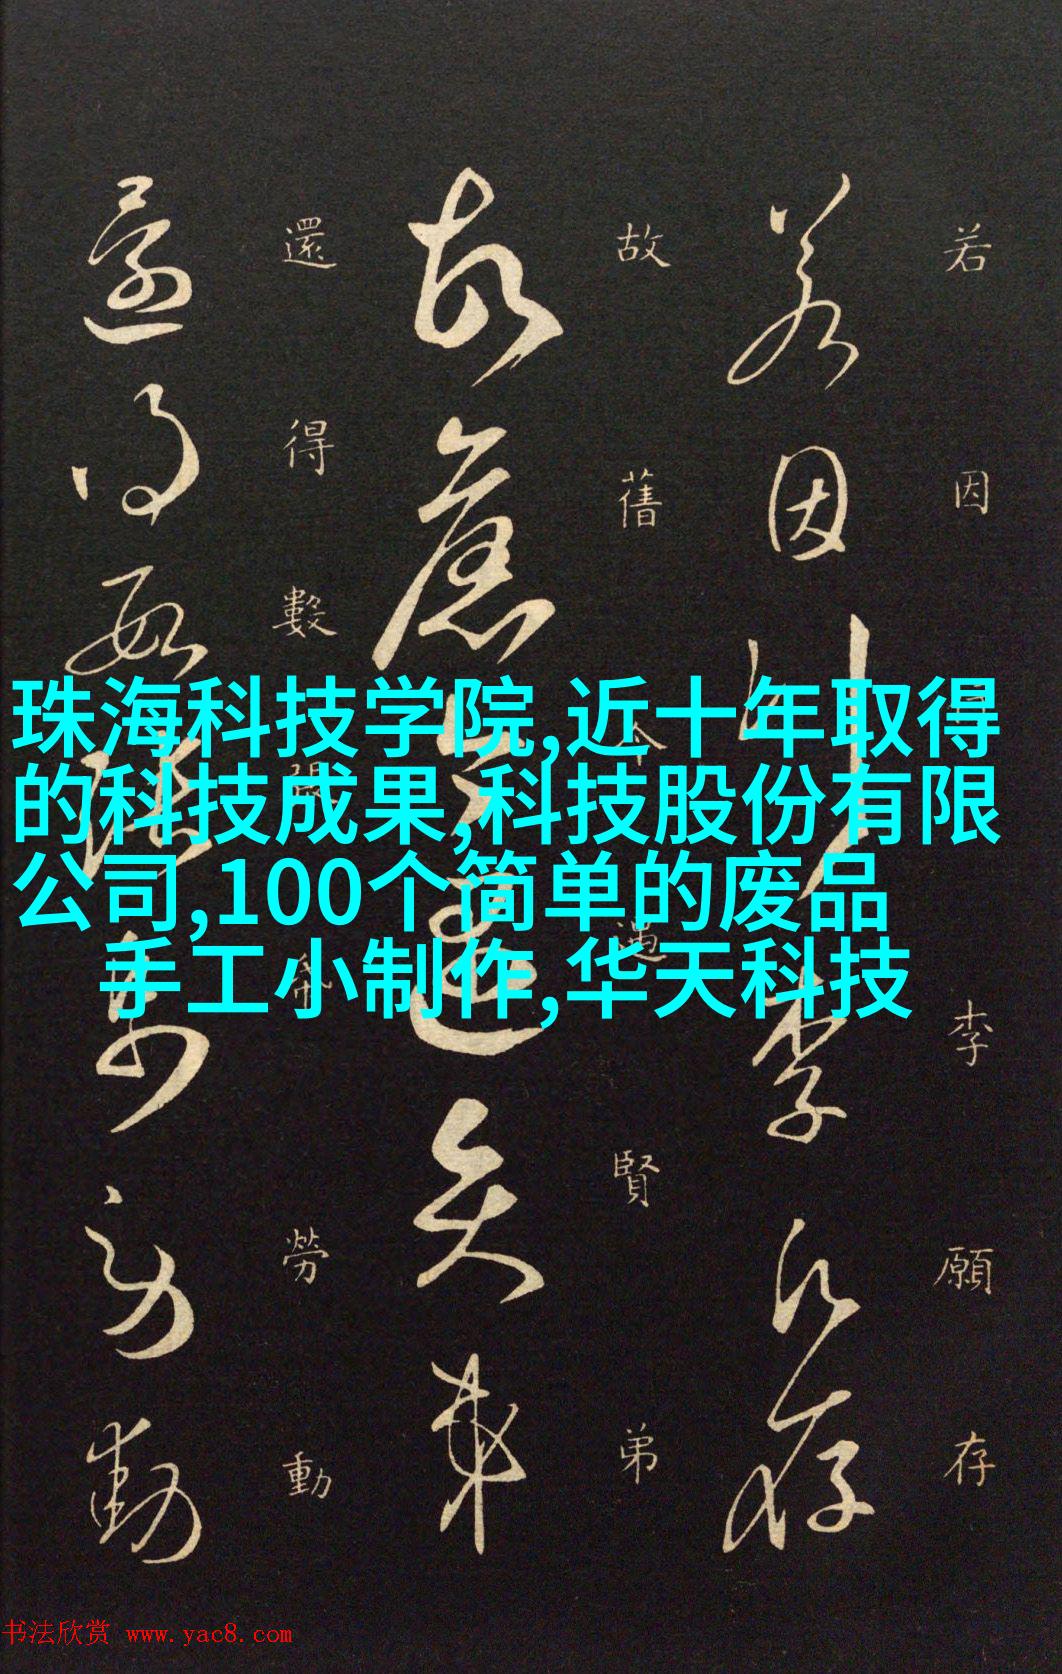 珠海科技学院,近十年取得
的科技成果,科技股份有限
公司,100个简单的废品
手工小制作,华天科技
若因李願存
故舊今遇賢弟
還得數張勞動
书法欣赏 www.yac8.com